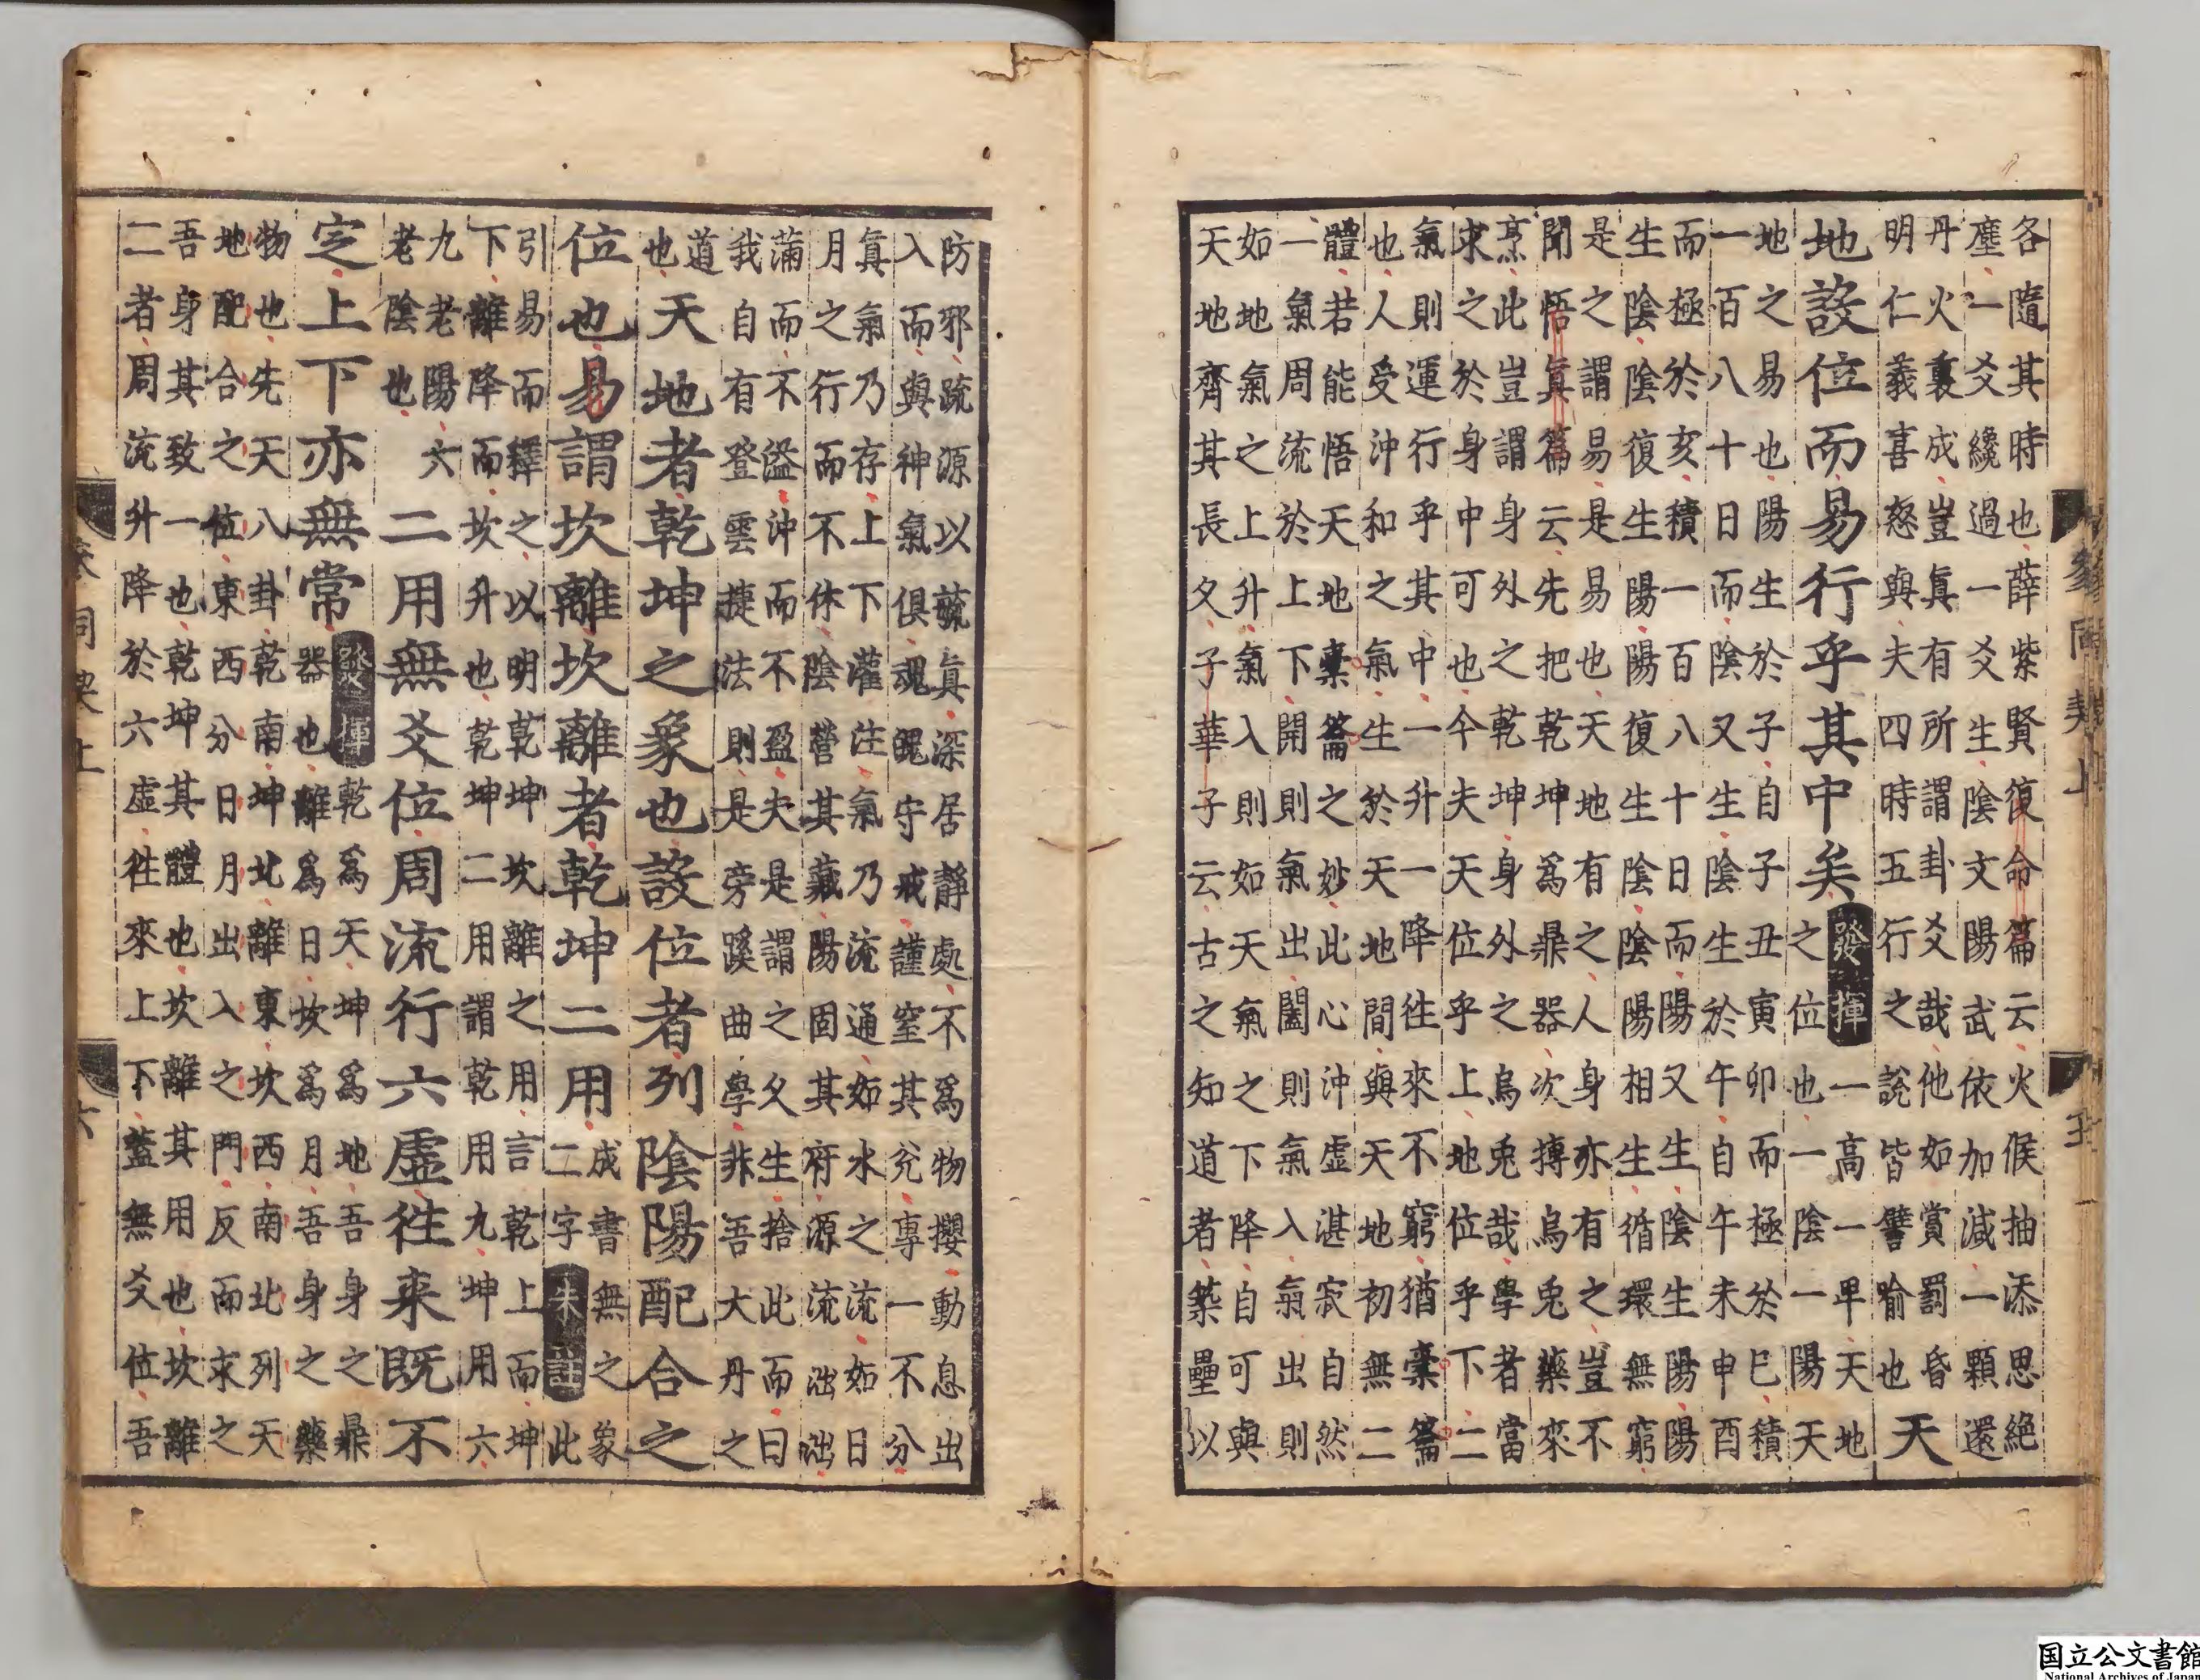 各隨其時也薛紫賢復命篇云火候抽添思絕
塵一爻纔過一爻生陰文陽武依加減一顆還
丹火裏成豈真有所謂卦爻哉他如賞罰昏
明仁義喜怒與夫四時五行之說皆譬喻也
天
地設位而易行乎其中矣
發揮
一高一卑天地
之位也一陰一陽天
地之易也陽生於子自子丑寅卯而極於巳積
一百八十日而陰又生陰生於午自午未申酉
而極於亥積一百八十日而陽又生陰生陽陽
生陰陰復生陽陽復生陰陰陽相生循環無窮
是之謂易是易也天地有之人身亦有之豈不
聞悟眞篇云先把乾坤爲鼎器次摶烏兔藥來
烹此豈謂身外之乾坤身外之烏兔哉學者當
求之於身中可也今夫天位乎上地位乎下二
氣則運行乎其中一升一降往來不窮猶橐籥
也人受沖和之氣生於天地間與天地初無二
體若能悟天地橐籥之妙此心沖虛湛寂自然
一氣周流於上下開則氣出闔則氣入氣出則
如地氣之上升氣入則如天氣之下降自可與
天地齊其長久子華子云古之知道者築壘以
參同契上
五
防邪疏源以毓眞深居靜處不爲物攖動息出
入而與神氣俱魂魄守戒謹窒其兌專一不分
眞氣乃存上下灌注氣乃流通如水之流如日
月之行而不休陰營其藏陽固其府源流泏泏
滿而不溢沖而不盈夫是謂之久生捨此而曰
我自有登雲捷法則是旁蹊曲學非吾大丹之
道
也
天地者乾坤之象也設位者列陰陽配合之
位也易謂坎離坎離者乾坤二用
成書無之象
二字
朱註
此
引易而釋之以明乾坤坎離之用言乾上而坤
下離降而坎升也乾坤二用謂乾用九坤用六
九老陽六
老陰也
二用無爻位周流行六虛往来既不
定上下亦無常
發揮
乾爲天坤爲地吾身之鼎
器也離爲日坎爲月吾身之藥
物也先天八卦乾南坤北離東坎西南北列天
地配合之位東西分日月出入之門反而求之
吾身其致一也乾坤其體也坎離其用也坎離
二者周流升降於六虛往來上下蓋無爻位吾
參同契上
六
国立公文書館
National Archives of Japan